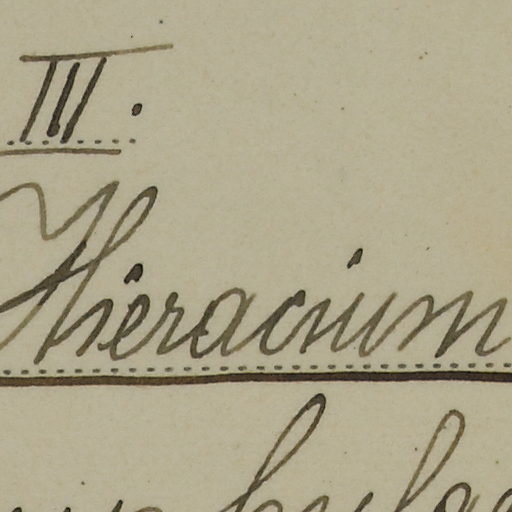 III.
Hieracium